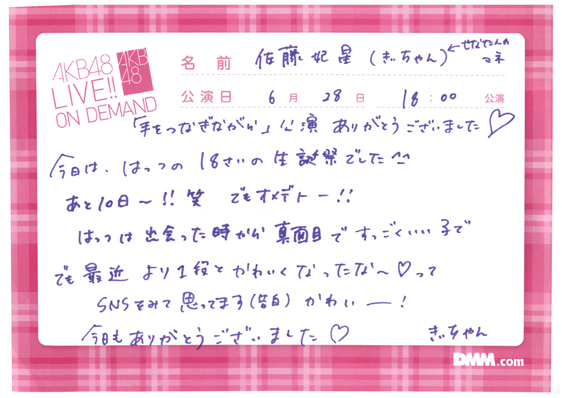 AKB48
LIVE!!
ON DEMAND
AKB
48
名前 佐藤妃星(きぃちゃん)←せなたんの
マネ
公演日 6月 28日 18:00 公演
「手をつなぎながら」公演 ありがとうございました♡
今日は、はっつの18さいの生誕祭でした^^
あと10日〜!! 笑 でもオメデトー!!
はっつは出会った時から真面目ですっごくいい子で
でも最近より1段とかわいくなったな〜♡って
SNSをみて思ってます(告白)かわいー!
今日もありがとうございました♡ きぃちゃん
DMM.com